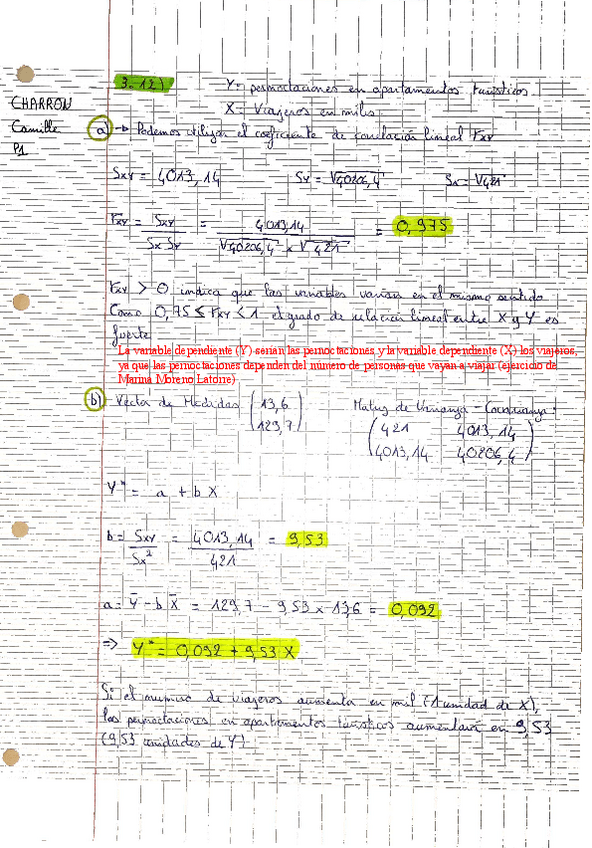 3.12)
Y: pernoctaciones en apartamentos turísticos
X: Viajeros en miles
CHARRON
Camille
P1
a) → Podemos utilizar el coeficiente de correlación lineal rxy
Sxy = 4013,14 Sy = √40206,4 Sx = √421
rxy = Sxy / Sx Sy = 4013,14 / √40206,4 × √421 = 0,975
rxy > 0 indica que las variables varian en el mismo sentido
Como 0,75 ≤ rxy < 1 el grado de relación lineal entre X y Y es
fuerte
La variable dependiente (Y) serían las pernoctaciones y la variable dependiente (X) los viajeros,
ya que las pernoctaciones dependen del número de personas que vayan a viajar (ejercicio de
Marina Moreno Latorre)
b) Vector de Medidas (13,6 129,7) Matriz de Varianza - Covarianza:
(421 4013,14
4013,14 40206,4)
Y* = a + b X
b = Sxy / Sx² = 4013,14 / 421 = 9,53
a = Y̅ - b X̅ = 129,7 - 9,53 × 13,6 = 0,092
=> Y* = 0,092 + 9,53 X
Si el numero de viajeros aumenta en mil (1 unidad de X),
las pernoctaciones en apartamentos turisticos aumentará en 9,53
(9,53 unidades de Y)